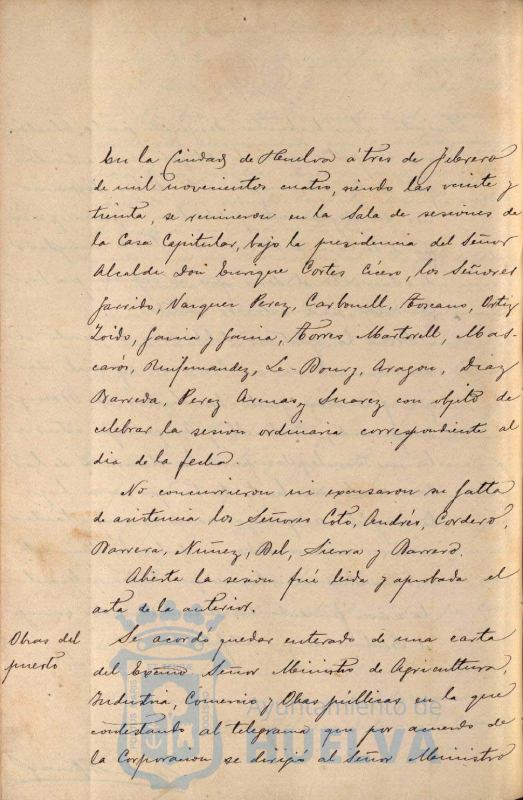 En la Ciudad de Huelva á tres de Febrero
de mil novecientos cuatro, siendo las veinte y
treinta, se reunieron en la Sala de sesiones de
la Casa Capitular, bajo la presidencia del Señor
Alcalde Don Enrique Cortes Cícero, los Señores
Garrido, Vazquez Perez, Carbonell, Toscano, Ortiz
Zoido, Garcia y Garcia, Torres Martorell, Mas-
carós, Ruifernandez, Le-Bourg, Aragon, Diaz
Barreda, Perez Arenas y Suarez con objeto de
celebrar la sesion ordinaria correspondiente al
dia de la fecha.
No concurrieron ni excusaron su falta
de asistencia los Señores Coto, Andrés, Cordero,
Barrera, Nuñez, Bel, Sierra y Barrero.
Abierta la sesion fué leida y aprobada el
acta de la anterior.
Obras del
puerto
Se acordo quedar enterado de una carta
del Excmo. Señor Ministro de Agricultura,
Industria, Comercio y Obras públicas en la que
contestando al telegrama que por acuerdo de
la Corporacion se dirijió al Señor Ministro
Ayuntamiento de
HUELVA